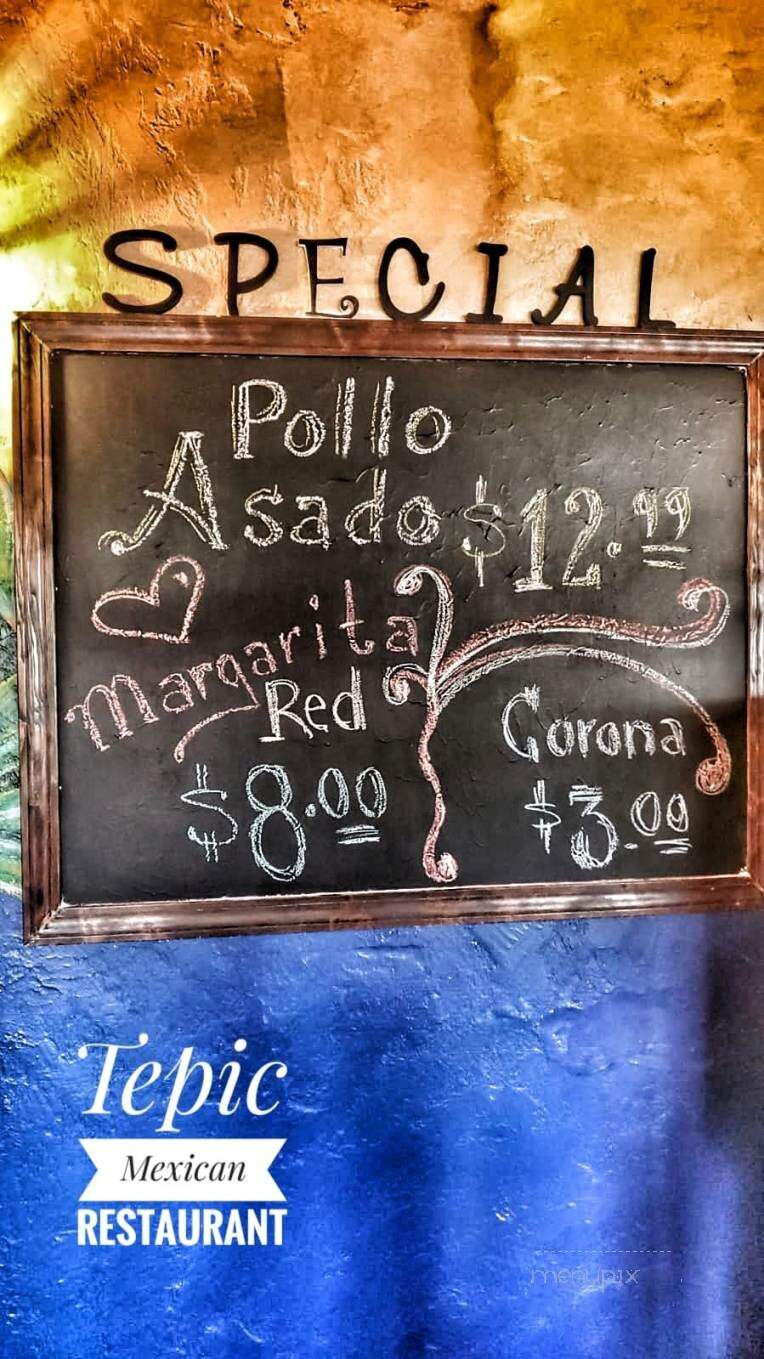 SPECIAL
Pollo
Asado $12.99
Margarita
Red
$8.00
Corona
$3.00
Tepic
Mexican
RESTAURANT
menupix